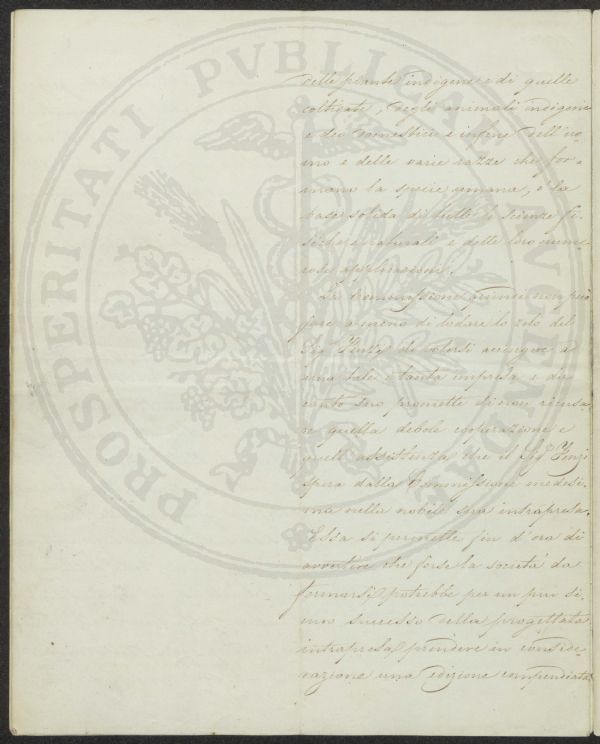 delle piante indigene e di quelle
coltivate, degli animali indigeni
e dei domestici e infine dell'uo-
mo e delle varie razze che for-
mano la specie umana, è la
base solida di tutte le scienze fi-
siche e naturali e delle loro nume-
rose applicazioni.
La Commissione quindi non può
fare a meno di lodare lo zelo del
Sig.r di volersi accingere a
una tale e tanta impresa e da
canto suo promette di non ricusa-
re quella debole cooperazione e
quell'assistenza che il Sig.r
spera dalla Commissione medesi-
ma nella nobile sua intrapresa.
Essa si permette fin d'ora di
avvertire che forse la società da
formarsi potrebbe per un più si-
curo successo della progettata
intrapresa prendere in conside-
razione una edizione compendiata
PROSPERITATI PVBLICAE AVGENDAE